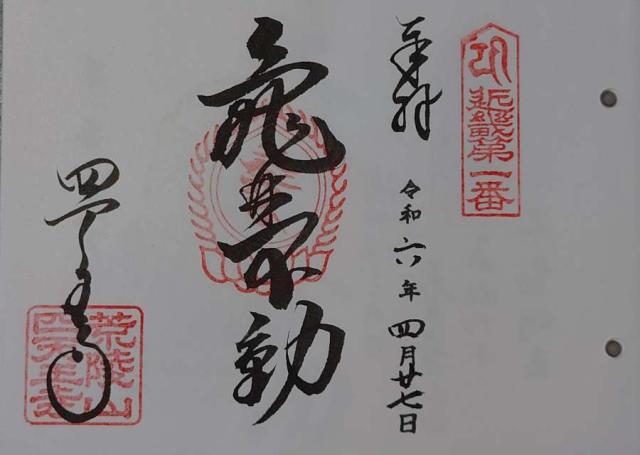 近畿第一番
奉拝
令和六年四月廿七日
亀井不動
四天王寺
荒陵山
四天王寺